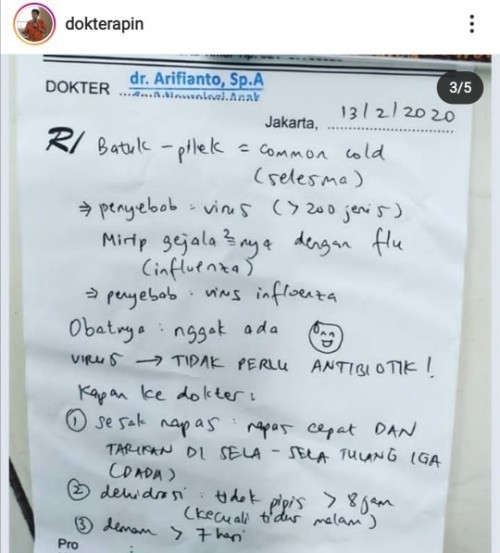 dokterapin
3/5
DOKTER dr. Arifianto, Sp.A
Jakarta, 13/2/2020
R/ Batuk - pilek = common cold
(selesma)
⇒ penyebab : virus (> 200 jenis)
Mirip gejala²=nya dengan flu
(influenza)
⇒ penyebab : virus influenza
Obatnya : nggak ada
VIRUS → TIDAK PERLU ANTIBIOTIK !
Kapan ke dokter :
① sesak napas : napas cepat DAN
TARIKAN DI SELA - SELA TULANG IGA
(DADA)
② dehidrasi : tidak pipis > 8 jam
(kecuali tidur malam)
③ demam > 7 hari
Pro